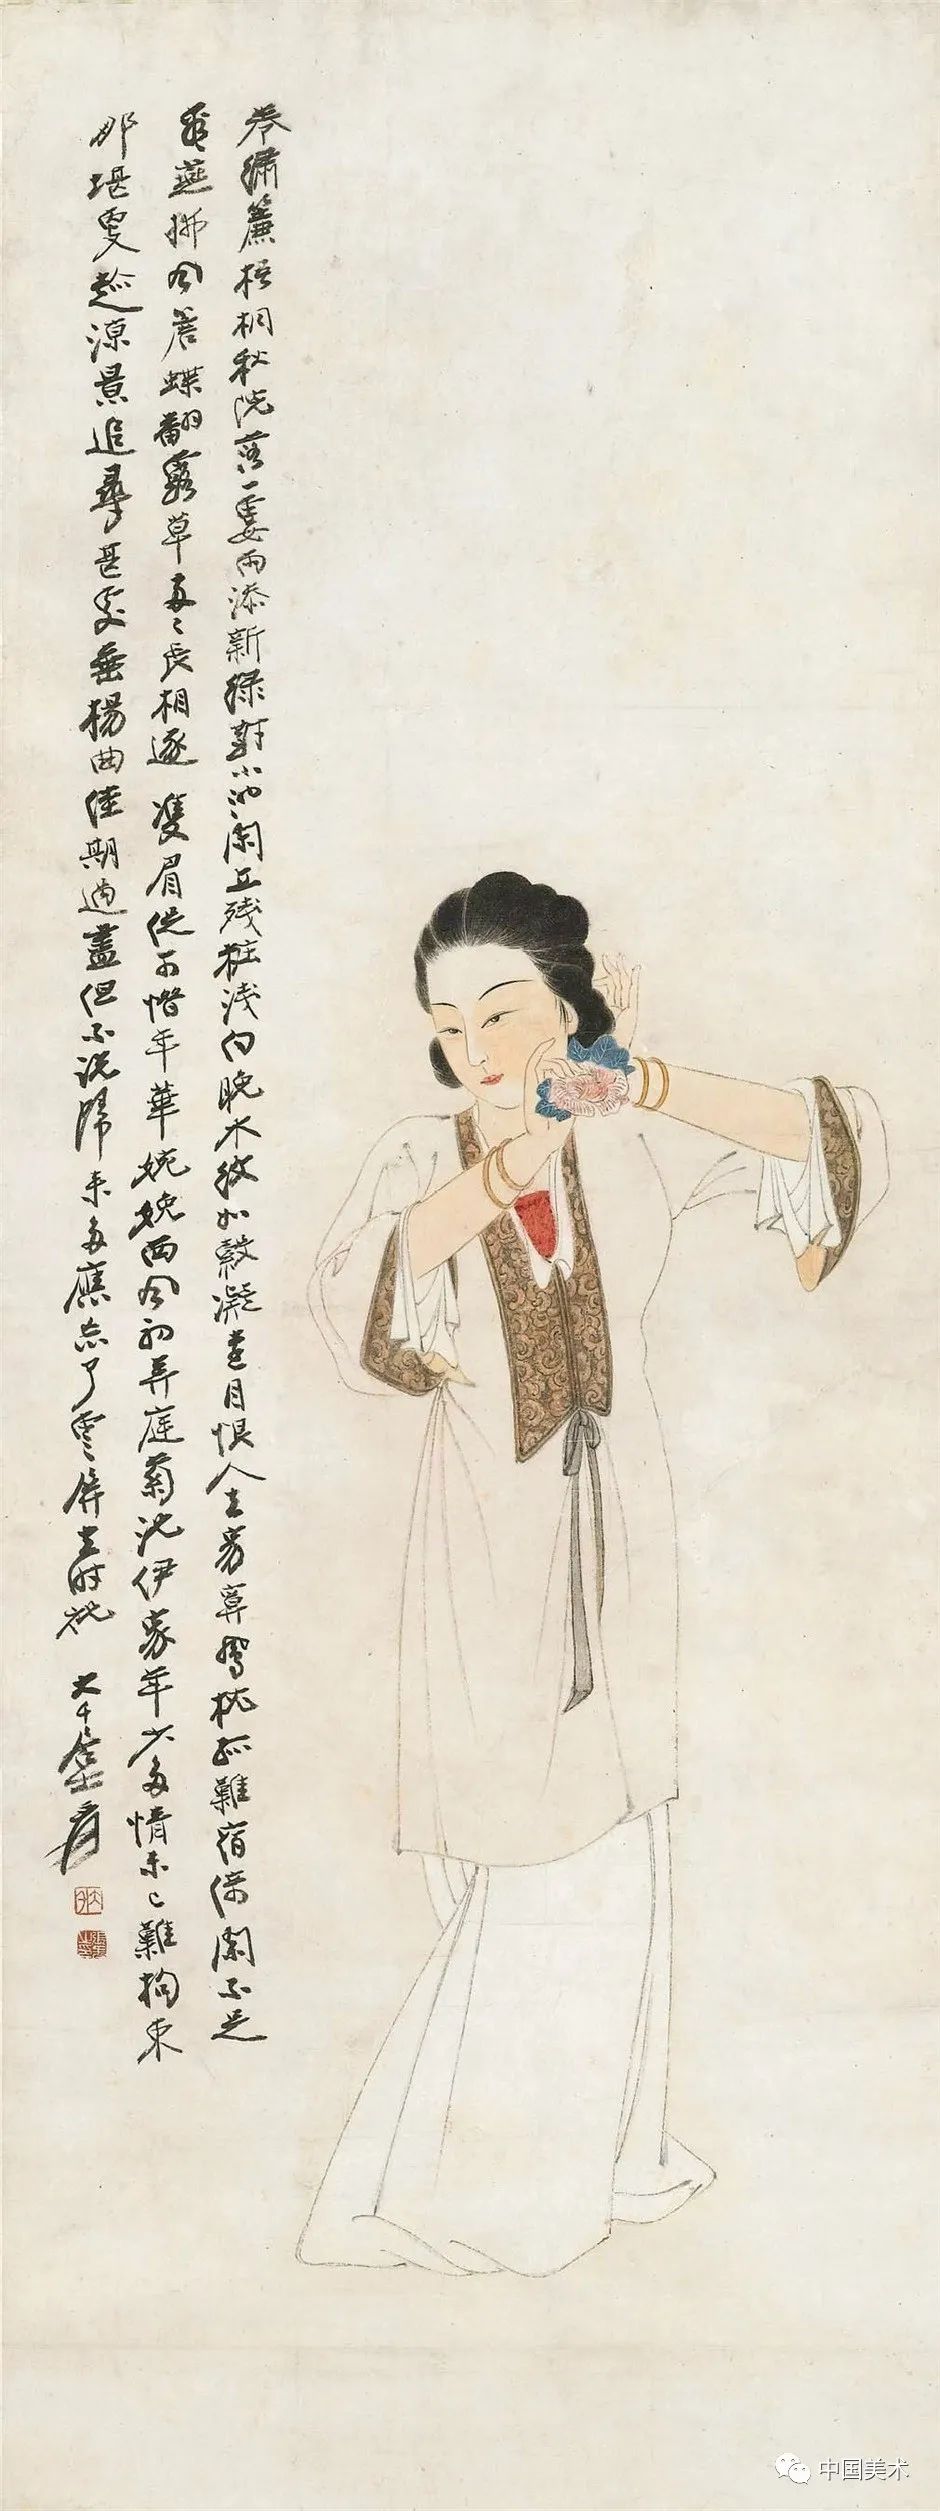 卷繡簾梧桐秋院落一霎雨添新綠對小池閑立殘粧淺向晚水紋如縠凝遠目恨人去寂寂鳳枕孤難宿倚闌不足
看燕拂風簷蝶翻露草兩〻長相逐 雙眉促可惜年華婉娩西風初弄庭菊況伊家年少多情未已難拘束
那堪更趂涼景追尋甚處垂楊曲佳期過盡但不說歸來多應忘了雲屏去時祝 大千居士爰
中国美术